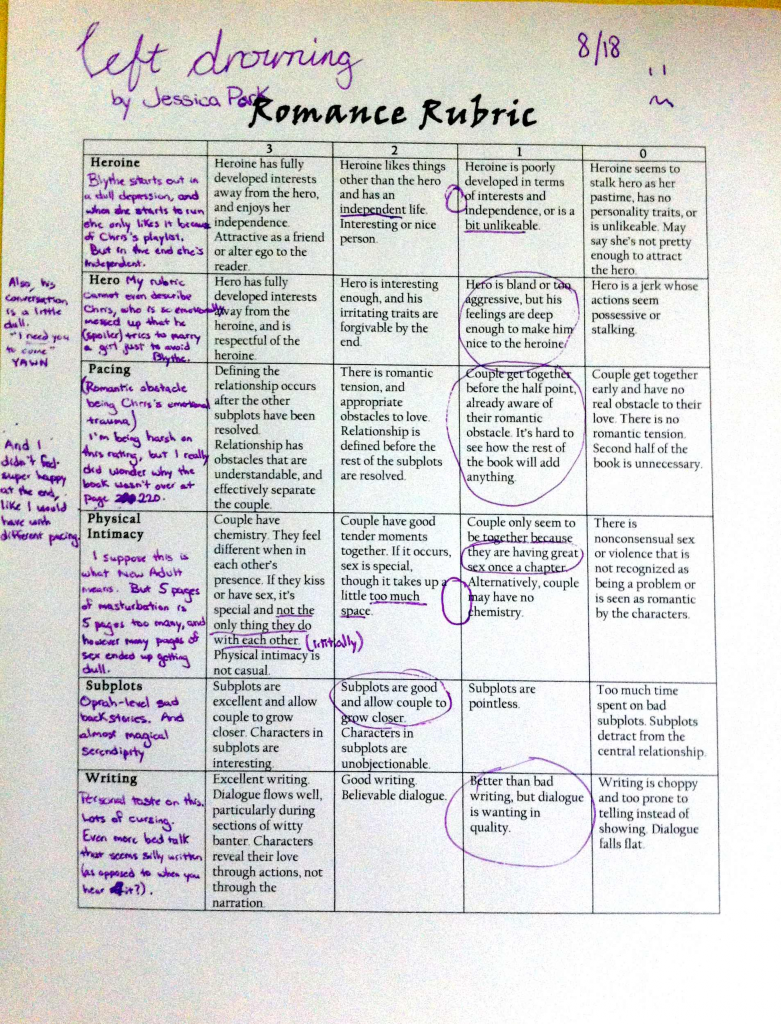 left drowning
8/18
by Jessica Park
Romance Rubric
3
2
1
0
Heroine
Blythe starts out in
a dull depression, and
when she starts to run
she only likes it because
of Chris's playlist.
But in the end she's
independent.
Heroine has fully
developed interests
away from the hero,
and enjoys her
independence.
Attractive as a friend
or alter ego to the
reader.
Heroine likes things
other than the hero
and has an
independent life.
Interesting or nice
person.
Heroine is poorly
developed in terms
of interests and
independence, or is a
bit unlikeable.
Heroine seems to
stalk hero as her
pastime, has no
personality traits, or
is unlikeable. May
say she's not pretty
enough to attract
the hero.
Also, his
conversation
is a little
dull.
"I need you
to come"
YAWN
Hero My rubric
cannot even describe
Chris, who is so emotionally
messed up that he
(spoiler) tries to marry
a girl just to avoid
Blythe.
Hero has fully
developed interests
away from the
heroine, and is
respectful of the
heroine.
Hero is interesting
enough, and his
irritating traits are
forgivable by the
end.
Hero is bland or too
aggressive, but his
feelings are deep
enough to make him
nice to the heroine.
Hero is a jerk whose
actions seem
possessive or
stalking.
Pacing
(Romantic obstacle
being Chris's emotional
trauma)
I'm being harsh on
this rating, but I really
did wonder why the
book wasn't over at
page 220.
And I
didn't feel
super happy
at the end,
like I would
have with
different pacing
Defining the
relationship occurs
after the other
subplots have been
resolved.
Relationship has
obstacles that are
understandable, and
effectively separate
the couple.
There is romantic
tension, and
appropriate
obstacles to love.
Relationship is
defined before the
rest of the subplots
are resolved.
Couple get together
before the half point,
already aware of
their romantic
obstacle. It's hard to
see how the rest of
the book will add
anything.
Couple get together
early and have no
real obstacle to their
love. There is no
romantic tension.
Second half of the
book is unnecessary.
Physical
Intimacy
I suppose this is
what New Adult
means. But 5 pages
of masturbation is
5 pages too many, and
however many pages of
sex ended up getting
dull.
Couple have
chemistry. They feel
different when in
each other's
presence. If they kiss
or have sex, it's
special and not the
only thing they do
with each other. (initially)
Physical intimacy is
not casual.
Couple have good
tender moments
together. If it occurs,
sex is special,
though it takes up a
little too much
space.
Couple only seem to
be together because
they are having great
sex once a chapter.
Alternatively, couple
may have no
chemistry.
There is
nonconsensual sex
or violence that is
not recognized as
being a problem or
is seen as romantic
by the characters.
Subplots
Oprah-level sad
backstories. And
almost magical
serendipity
Subplots are
excellent and allow
couple to grow
closer. Characters in
subplots are
interesting.
Subplots are good
and allow couple to
grow closer.
Characters in
subplots are
unobjectionable.
Subplots are
pointless.
Too much time
spent on bad
subplots. Subplots
detract from the
central relationship.
Writing
Personal taste on this.
Lots of cursing.
Even more bed talk
that seems silly written
(as opposed to when you
hear it?).
Excellent writing.
Dialogue flows well,
particularly during
sections of witty
banter. Characters
reveal their love
through actions, not
through the
narration.
Good writing.
Believable dialogue.
Better than bad
writing, but dialogue
is wanting in
quality.
Writing is choppy
and too prone to
telling instead of
showing. Dialogue
falls flat.